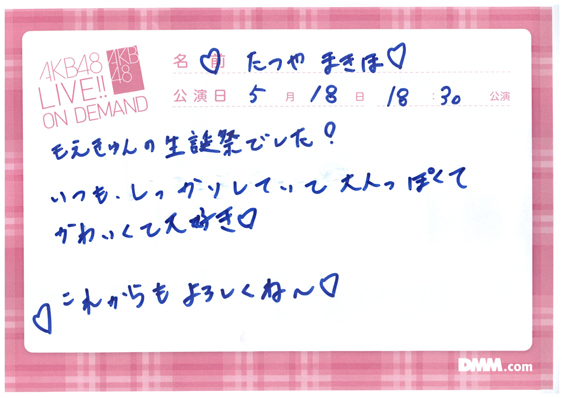 AKB48
LIVE!!
ON DEMAND
AKB
48
名前 ♡ たつや まきほ♡
公演日 5月 18日 18:30 公演
もえきゅんの生誕祭でした!
いつも、しっかりしていて大人っぽくて
かわいくて大好き♡
♡これからもよろしくね〜♡
DMM.com